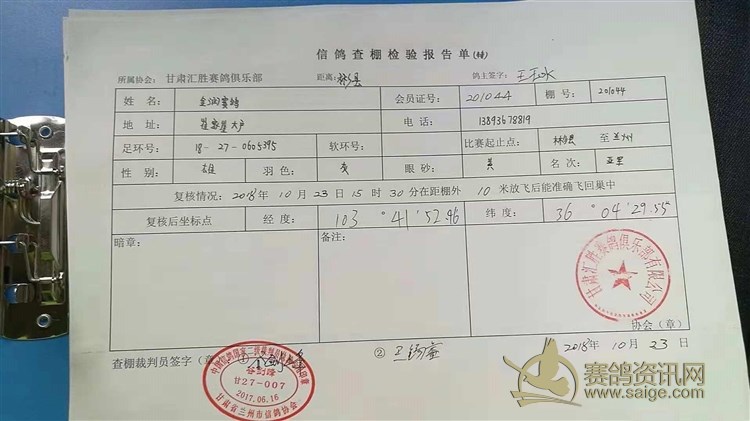 信鸽查棚检验报告单
所属协会： 甘肃汇胜赛鸽俱乐部 距离： 彬县 鸽主签字：
姓 名： 会员证号： 201044 棚 号： 201044
地 址： 电 话： 13893678819
足环号： 18-27-0605395 软环号： 比赛起止点： 至 兰州
性 别： 雄 羽色： 眼砂： 黄 名 次：
复核情况：2018年 10 月 23 日 15 时 30 分在距棚外 10 米放飞后能准确飞回巢中
复核后坐标点 经 度： 103 °41'52.96 纬 度： 36 °04'29.55
暗章： 备注：
甘肃汇胜赛鸽俱乐部有限公司
协会（章）
查棚裁判员签字（章） ① ② 2018年 10 月 23 日
甘27-007
2017.06.16
甘肃省兰州市信鸽协会
赛鸽资讯网
www.saige.com